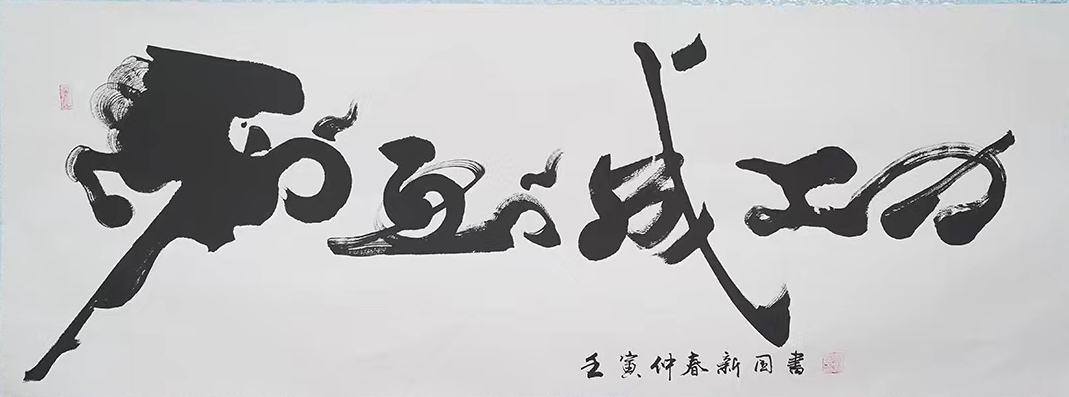 马到成功
壬寅仲春新国書